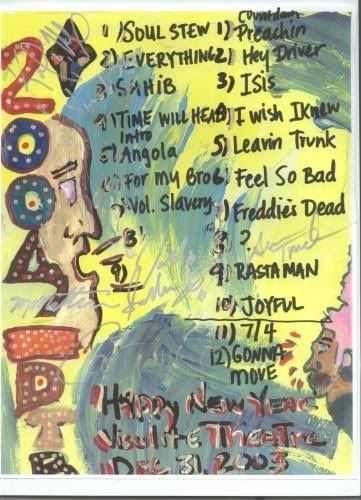 1) SOUL STEW
2) EVERYTHING
3) SAHIB
4) TIME WILL HEAD
Intro
5) Angola
6) For my Bro
7) Vol. Slavery
8)
9)
Countdown
1) Preachin
2) Hey Driver
3) Isis
4) I wish I Knew
5) Leavin Trunk
6) Feel So Bad
7) Freddie's Dead
8) ?
9) RASTAMAN
10) JOYFUL
11) 7/4
12) GONNA
MOVE
2004
DTB
Happy New Year
Visulite Theatre
Dec 31, 2003